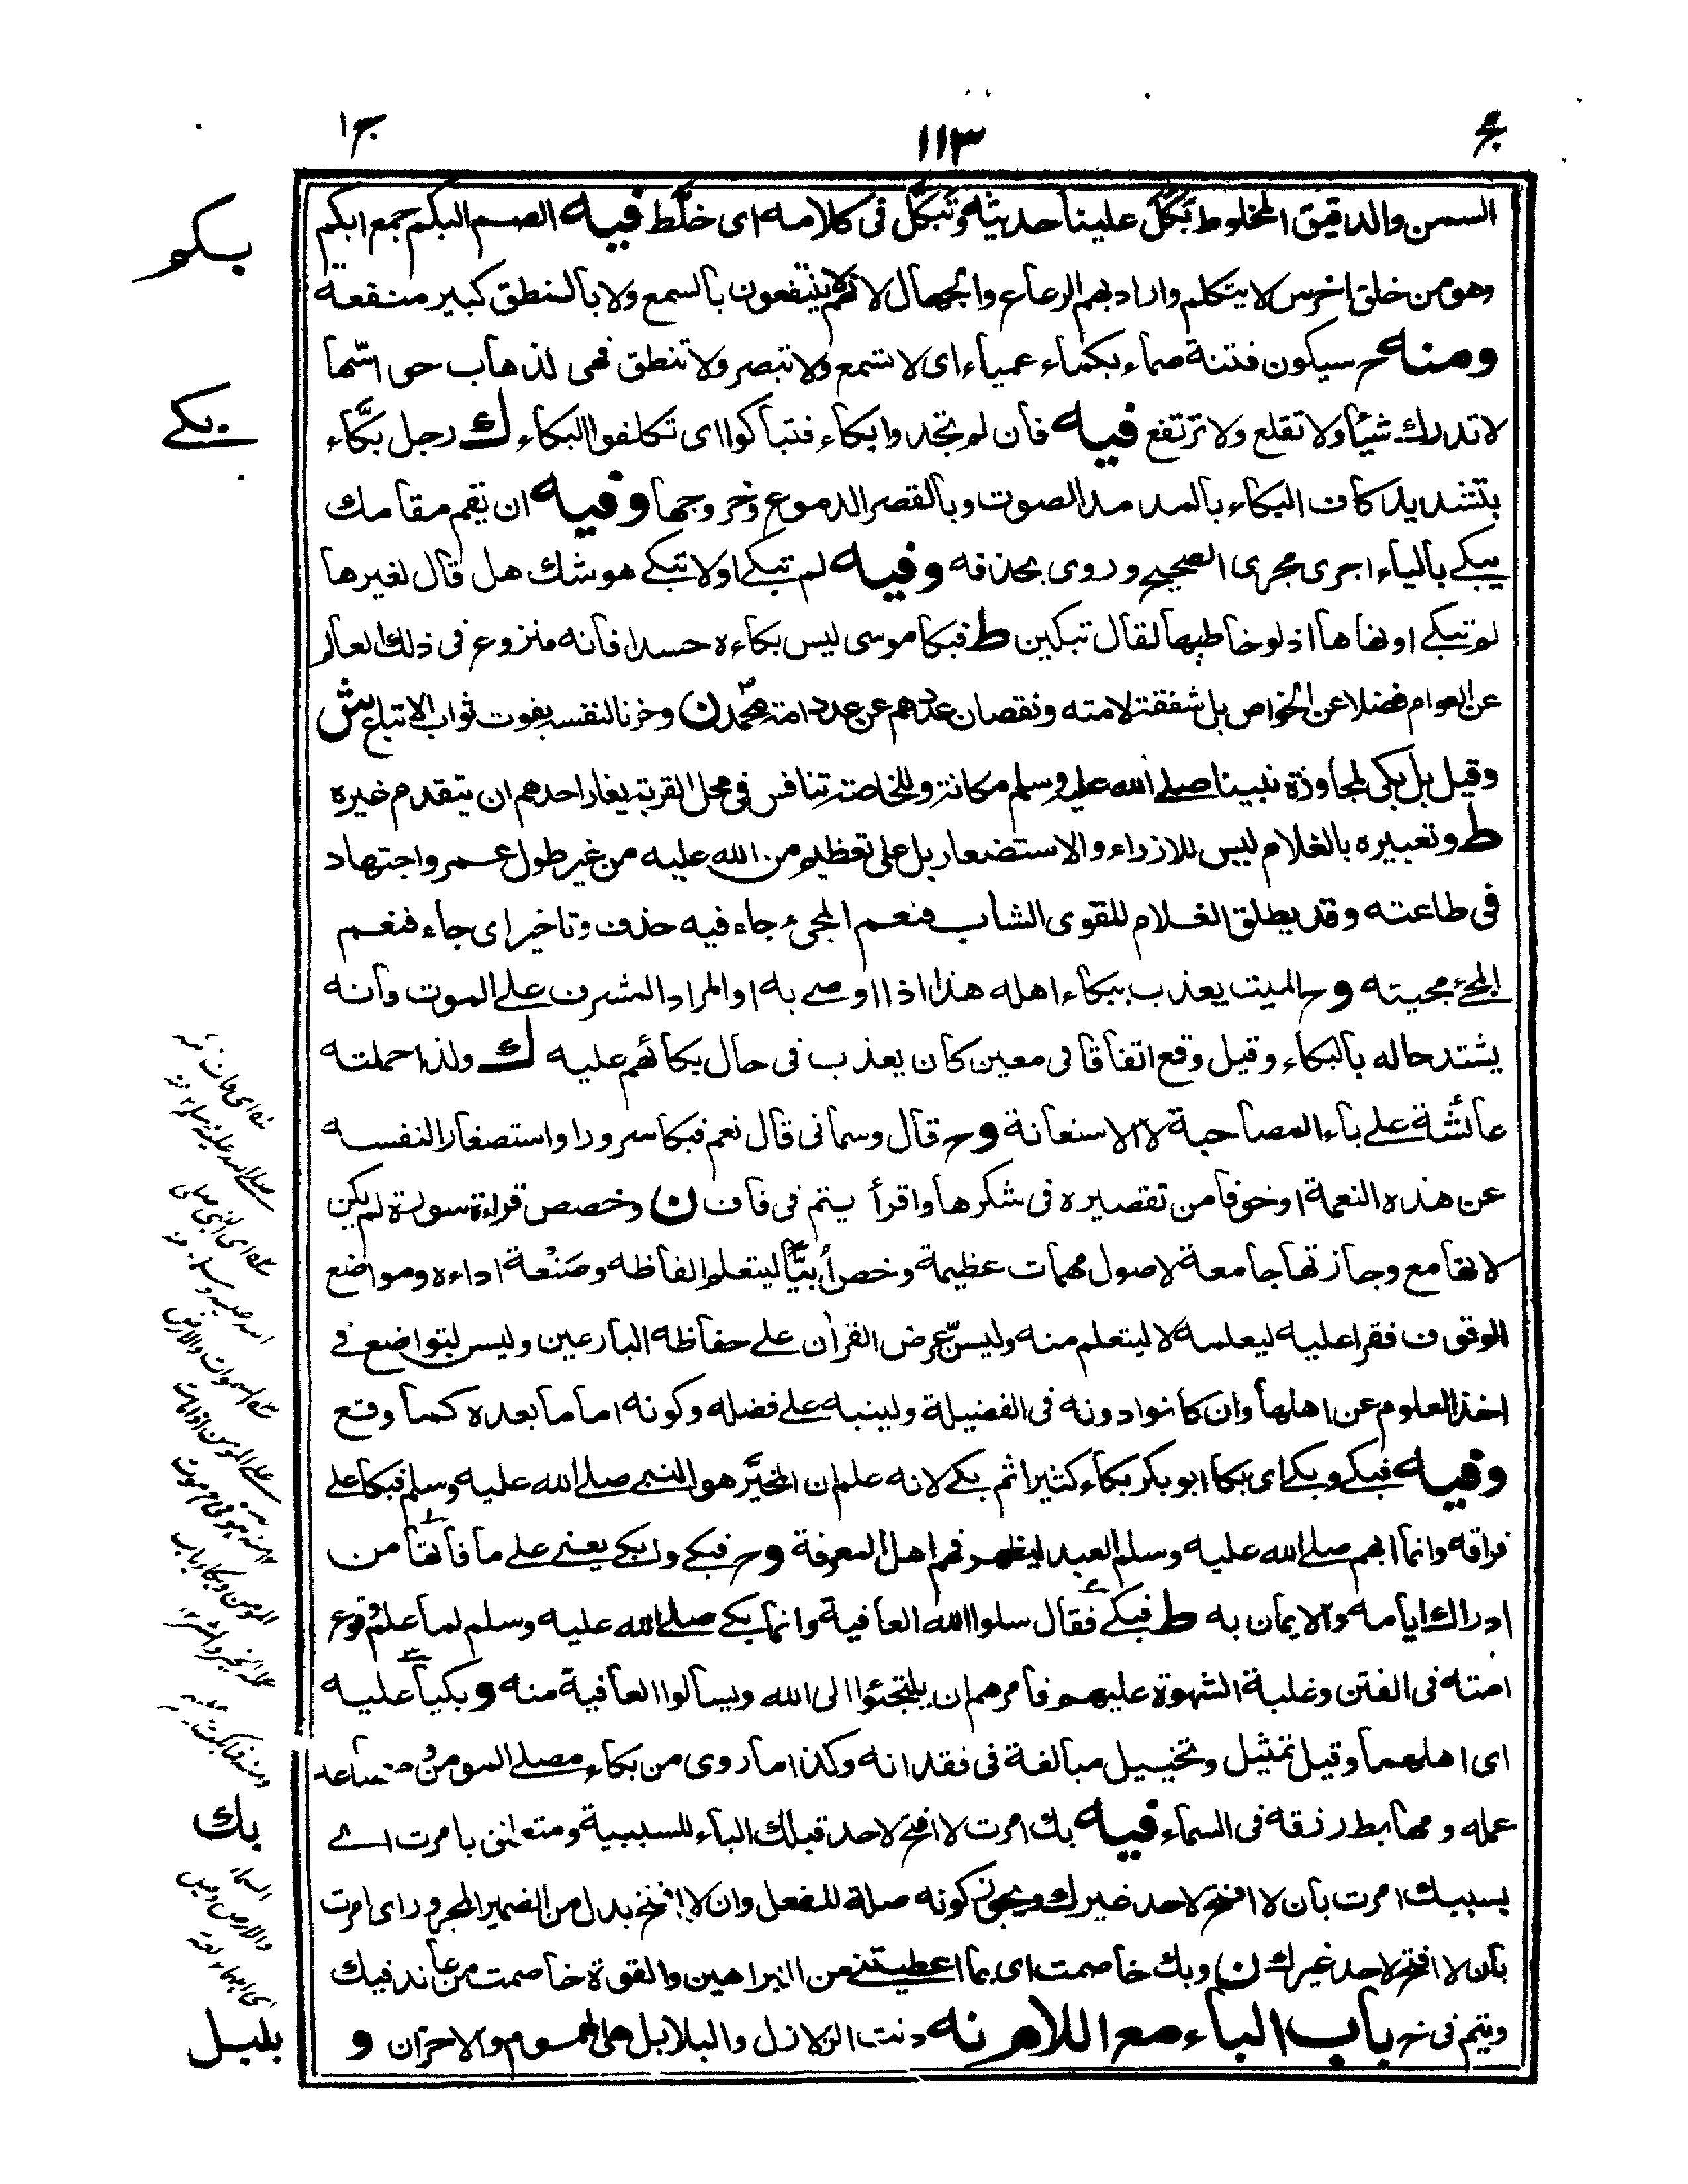 ج ١١٣ ج١
السمن والدقيق المخلوط بَكَّلَ علينا حديثه وتَبَكَّل فى كلامه اى خلّط فيه الصم البكم جمع ابكم
بكم
وهو من خلق اخرس لا يتكلم واراد بهم الرعاع والجهال لانهم لا ينتفعون بالسمع ولا بالنطق كبير منفعة
ومنه ح سيكون فتنة صماء بكماء عمياء اى لا تسمع ولا تبصر ولا تنطق فهى لذهاب حواسّها
لا تدرك شيئا ولا تقلع ولا ترتفع فيه فان لم تجدوا بكاء فتباكوا اى تكلفوا البكاء ك رجل بكّاء
بكى
بتشديد كاف البكاء بالمد مد الصوت وبالقصر الدموع وخروجها وفيه ان يقم مقامك
يبكى بالياء اجرى مجرى الصحيح وروى بحذفه وفيه لم تبكى او لا تبكى هو شك هل قال لغيرها
لم تبكى او نهاها اذ لو خاطبها لقال تبكين ط فبكا موسى ليس بكاءه حسدا فانه منزوع فى ذلك العالم
عن العوام فضلا عن الخواص بل شفقة لامته ونقصان عددهم عن عدد امة محمد ن وحزنا لنفسه بفوت ثواب الاتباع ش
وقيل بل بكى لمجاوزة نبينا صلى الله عليه وسلم مكانته وللخاصة تنافس فى محل القربة يغار احدهم ان يتقدم غيره
ط وتعبيره بالغلام ليس للازراء والاستضعار بل على تعظيم من الله عليه من غير طول عمر واجتهاد
فى طاعته وقد يطلق الغلام للقوى الشاب فنعم المجىء جاء فيه حذف وتاخير اى جاء فنعم
المجىء مجيئه وح الميت يعذب ببكاء اهله هذا اذا اوصى به او المراد المشرف على الموت وانه
يشتد حاله بالبكاء وقيل وقع اتفاقا فى معين كان يعذب فى حال بكائهم عليه ك ولذا حملته
عائشة على باء المصاحبة لا الاستعانة وح قال وسمانى قال نعم فبكا سرورا واستصغارا لنفسه
عن هذه النعمة او خوفا من تقصيره فى شكرها واقرأ يتم فى قاف ن وخصص قراءة سورة لم يكن
لانها مع وجازتها جامعة لاصول مهمات عظيمة وخص اُبيًّا ليتعلم الفاظه وصَنْعة اداءه ومواضع
الوقوف فقرا عليه ليعلمه لا ليتعلم منه وليسن عرض القرآن على حفاظه البارعين وليسن ليتواضع فى
اخذ العلوم عن اهلها وان كانوا دونه فى الفضيلة ولينبه على فضله وكونه اماما بعده كما وقع
وفيه فبكى وبكى اى بكا ابو بكر بكاء كثيرا ثم بكى لانه علم ان المخيَّر هو النبى صلى الله عليه وسلم فبكا على
فراقه وانما ابهم صلى الله عليه وسلم العبد ليظهر فهم اهل المعرفة وح فبكى وابكى يعنى على ما فاتها من
ادراك ايامه والايمان به ط فبكى فقال سلوا الله العافية وانما بكى صلى الله عليه وسلم لما علم وقوع
امته فى الفتن وغلبة الشهوة عليهم فامرهم ان يلتجئوا الى الله ويسألوا العافية منه وبكيا عليه
اى اهلهما وقيل تمثيل وتخييل مبالغة فى فقدانه وكذا ما روى من بكاء مصلى المومن ومصاعد
عمله ومهابط رزقه فى السماء فيه بك امرت لا افتح لاحد قبلك الباء للسببية ومتعلق بامرت اى
بك
بسببك امرت بان لا افتح لاحد غيرك ويجوز كونه صلة للفعل وان لا افتح بدل من الضمير المجرور اى امرت
بان لا افتح لاحد غيرك ن وبك خاصمت اى بما اعطيتنى من البراهين والقوة خاصمت من عاند فيك
ويتم فى خ باب الباء مع اللام نه دنت الزلازل والبلابل هى الهموم والاحزان و
بلبل
صلى الله عليه وسلم
اى النبى صلى
الله عليه وسلم
السموات والارض
والارض وقيل